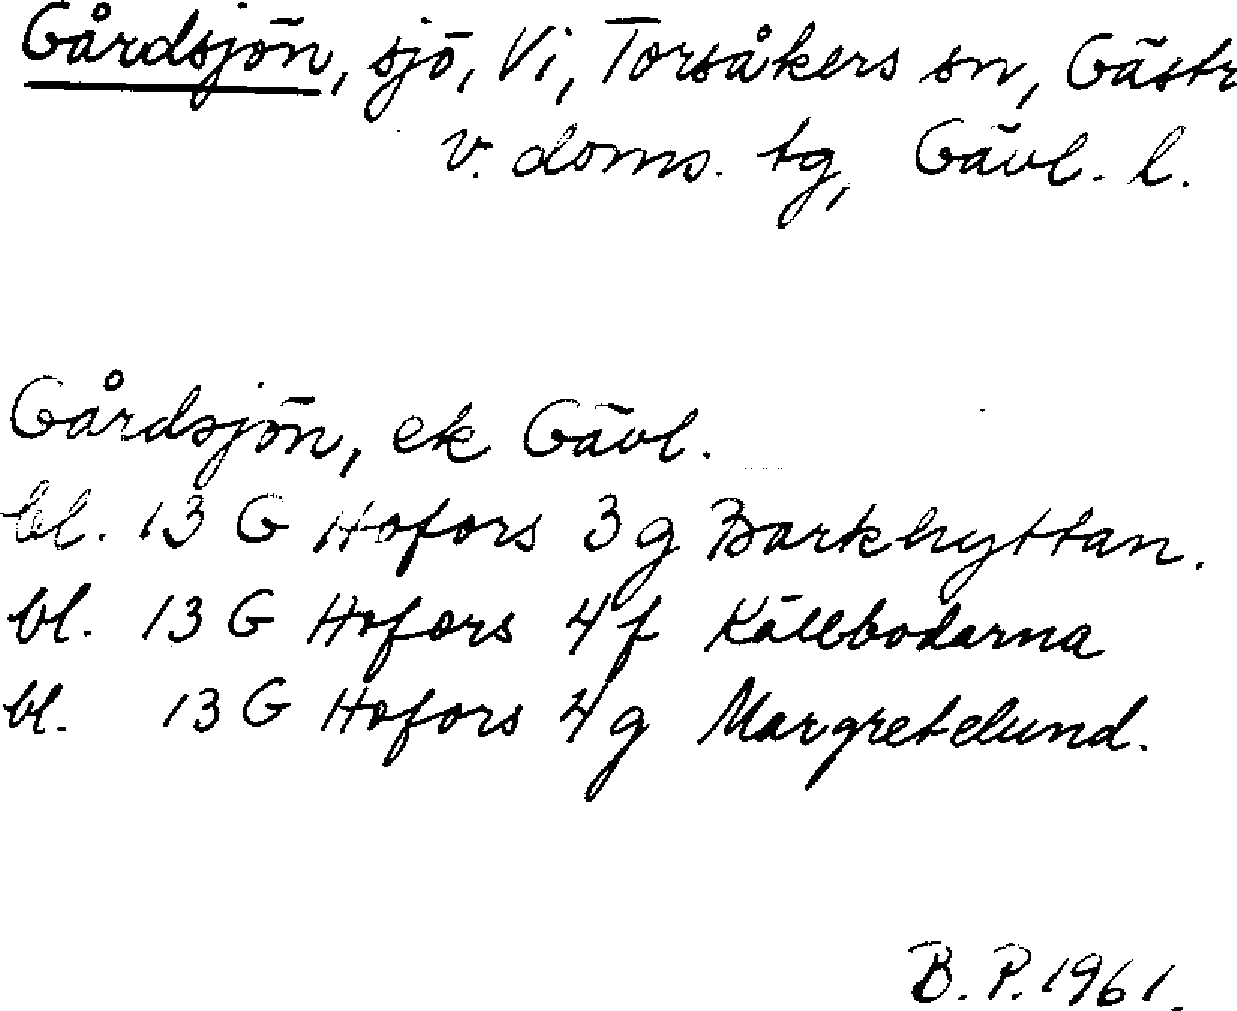 Gårdsjön, sjö, Vi, Torsåkers sn, Gästr
v. doms. tg, Gävl. l.
Gårdsjön, ek Gävl.
bl. 13 G Hofors 3 g Barkhyttan.
bl. 13 G Hofors 4 f Källbodarna
bl. 13 G Hofors 4 g Margretelund.
B. P. 1961.